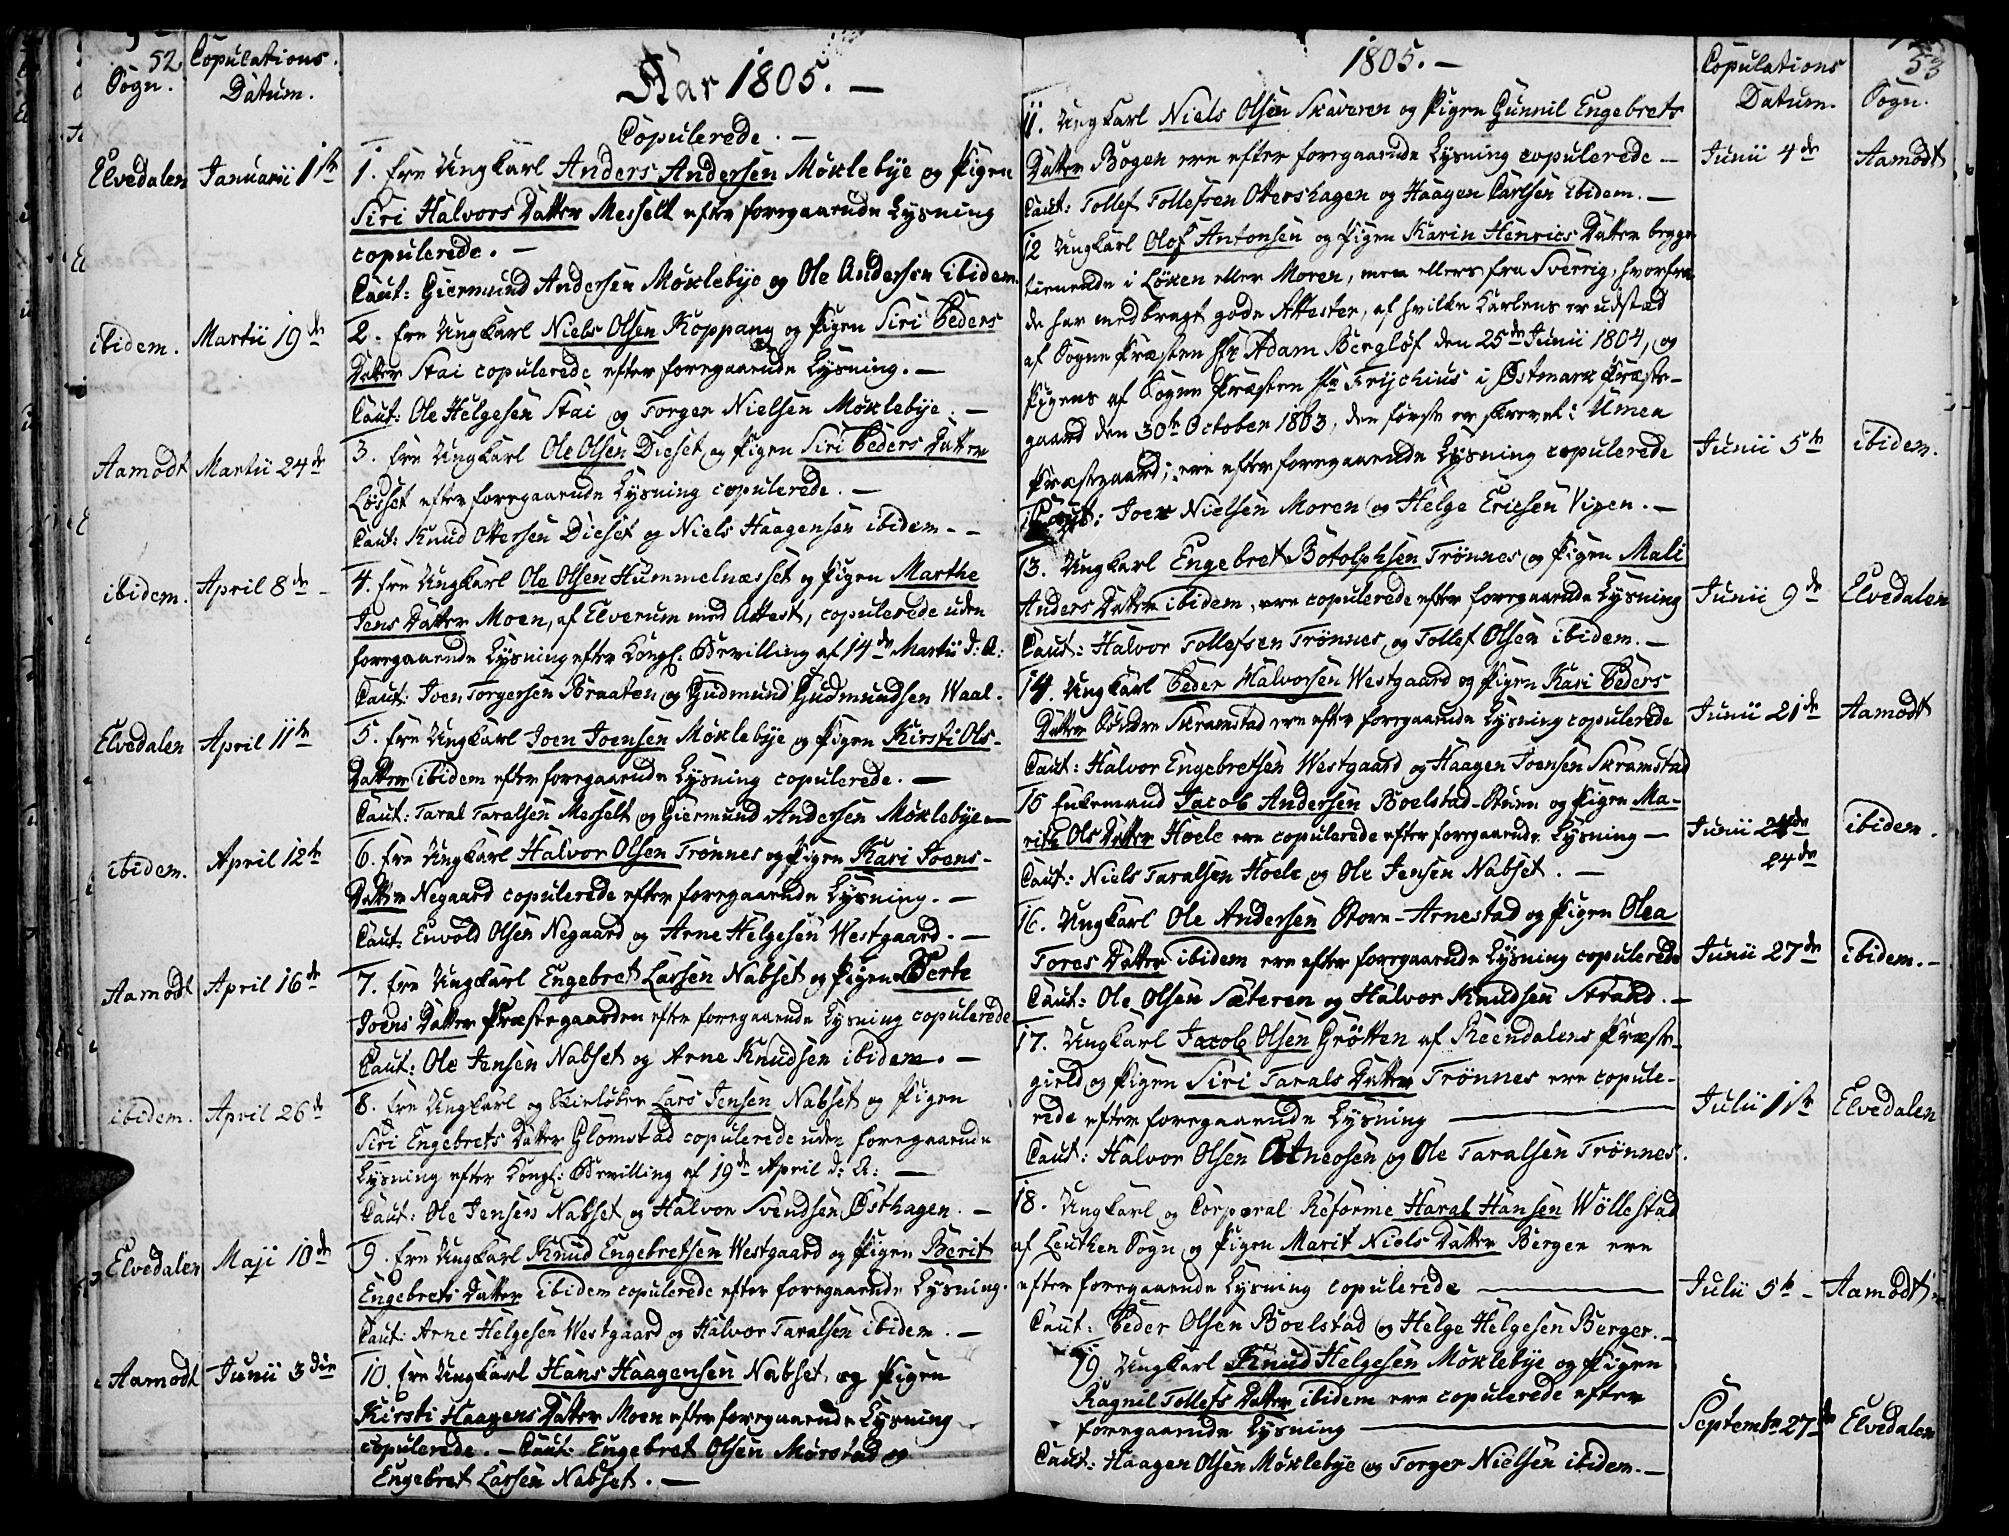 52 Copulations.
Sogn. Datum.
Aar 1805. —
Copulerede. —
Elvedalen Januarii 1ste 1. Ere Ungkarl Anders Andersen Møklebye og Pigen
Siri Halvors Datter Messelt efter foregaaende Lysning
copulerede. —
Caut: Giermund Andersen Møklebye og Ole Andersen ibidem.
ibidem. Martii 19de 2. Ere Ungkarl Niels Olsen Koppang og Pigen Siri Peders
Datter Stai copulerede efter foregaaende Lysning. —
Caut: Ole Helgesen Stai og Torger Nielsen Møklebye. —
Aamodt Martii 24de 3. Ere Ungkarl Ole Olsen Dieset og Pigen Siri Peders Datter
Løsset efter foregaaende Lysning copulerede. —
Caut: Knud Ottersen Dieset og Niels Haagensen ibidem - -
ibidem. April 8de - 4. Ere Ungkarl Ole Olsen Hummelnæsset og Pigen Marthe
Jens Datter Moen, af Elverum med Attest, copulerede uden
foregaaende Lysning efter Kongl: Bevilling af 14de Martii d: A:
Caut: Joen Torgersen Braaten og Gudmund Gudmundsen Waal.
Elvedalen April 11te 5. Ere Ungkarl Joen Joensen Møklebye og Pigen Kirsti Ols-
Datter ibidem efter foregaaende Lysning copulerede. —
Caut: Taral Taralsen Messelt og Giermund Andersen Møklebye —
ibidem. April 12te 6. Ere Ungkarl Halvor Olsen Trønnes og Pigen Kari Joens-
Datter Negaard copulerede efter foregaaende Lysning. —
Caut. Envold Olsen Negaard og Arne Helgesen Westgaard. —
Aamodt April 16de 7. Ere Ungkarl Engebret Larsen Nabset og Pigen Berte
Joens Datter Præstegaarden efter foregaaende Lysning copulerede
Caut: Ole Jensen Nabset og Arne Knudsen ibidem. —
ibidem. April 26de 8. Ere Ungkarl og Skieløber Lars Jensen Nabset og Pigen
Siri Engebrets Datter Glomstad copulerede uden foregaaende
Lysning efter Kongl: Bevilling af 19de April d: A: —
Caut: Ole Jensen Nabset og Halvor Svendsen Østhagen. —
Elvedalen Maji 10de 9. Ere Ungkarl Knud Engebretsen Westgaard og Pigen Berit
Engebrets Datter ibidem copulerede efter foregaaende Lysning.
Caut: Arne Helgesen Westgaard og Halvor Taralsen ibidem. —
Aamodt Junii 3die 10. Ere Ungkarl Hans Haagensen Nabset, og Pigen
Kirsti Haagens Datter Moen efter foregaaende Lysning
copulerede. — Caut: Engebret Olsen Mørstad og
Engebret Larsen Nabset. —
1805. — Copulations 53
Datum. Sogn.
11. Ungkarl Niels Olsen Skaveren og Pigen Gunnil Engebrets
Datter Bogen ere efter foregaaende Lysning copulerede — Junii 4de Aamodt
Caut: Tollef Tollefsen Ottershagen og Haagen Carlsen ibidem. —
12 Ungkarl Olof Antonsen og Pigen Karin Henrics Datter begge
tienende i Løken eller Moren, men ellers fra Sverrig, hvorfra
de har medbragt gode Attester, af hvilke Karlens er udstæd
af Sogne Præsten Hr Adam Bergløf den 25de Junii 1804, og
Pigens af Sogne Præsten Hr Fryschius i Østmark Præste-
gaard den 30te October 1803, den første er skrevet i Umea
Præstegaard; ere efter foregaaende Lysning copulerede Junii 5te ibidem.
Caut: Joen Nielsen Moren og Helge Ericsen Vigen. —
13. Ungkarl Engebret Botolphsen Trønnes og Pigen Mali
Anders Datter ibidem, ere copulerede efter foregaaende Lysning Junii 9de Elvedalen
Caut: Halvor Tollefsen Trønnes, og Tollef Olsen ibidem. —
14. Ungkarl Peder Halvorsen Westgaard og Pigen Kari Peders
Datter Søndre Skramstad ere efter foregaaende Lysning copulerede Junii 21de Aamodt
Caut: Halvor Engebretsen Westgaard og Haagen Joensen Skramstad
15 Enkemand Jacob Andersen Boelstad-Stuen og Pigen Ma-
rith Ols Datter Hoele ere copulerede efter foregaaende Lysning — Junii 24de ibidem.
24de
Caut: Niels Taralsen Hoele og Ole Jensen Nabset. —
16. Ungkarl Ole Andersen Store-Arnestad og Pigen Olea
Tores Datter ibidem ere efter foregaaende Lysning copulerede Junii 27de ibidem. -
Caut: Ole Olsen Sæteren og Halvor Knudsen Strand. —
17. Ungkarl Jacob Olsen Grøtten af Reendalens Præste-
gield og Pigen Siri Tarals Datter Trønnes ere copule-
rede efter foregaaende Lysning — Julii 1ste Elvedalen
Caut: Halvor Olsen Atneosen og Ole Taralsen Trønnes.
18. Ungkarl og Corporal Reforme Haral Hansen Wøllestad
af Leuthen Sogn og Pigen Marit Niels Datter Berger ere
efter foregaaende Lysning copulerede — Julii 5te - Aamodt
Caut: Peder Olsen Boelstad og Helge Helgesen Berger. —
19 Ungkarl Knud Helgesen Møklebye og Pigen
Ragnil Tollefs Datter ibidem ere copulerede efter
foregaaende Lysning — Septembr 27de Elvedalen
Caut: Haagen Olsen Møklebye og Torger Nielsen ibidem. —